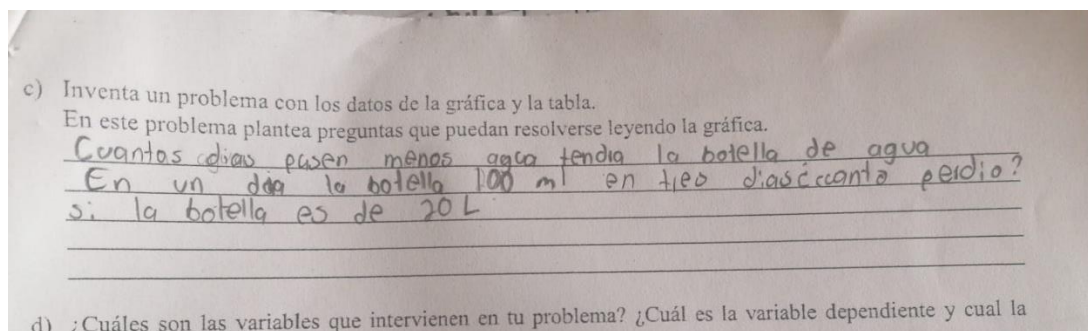 c) Inventa un problema con los datos de la gráfica y la tabla.
En este problema plantea preguntas que puedan resolverse leyendo la gráfica.
Cuantos dias pasen menos agua tendia la botella de agua
En un dia la botella 100 ml en tres dias ¿canto perdio?
si la botella es de 20 L
d) ¿Cuáles son las variables que intervienen en tu problema? ¿Cuál es la variable dependiente y cual la